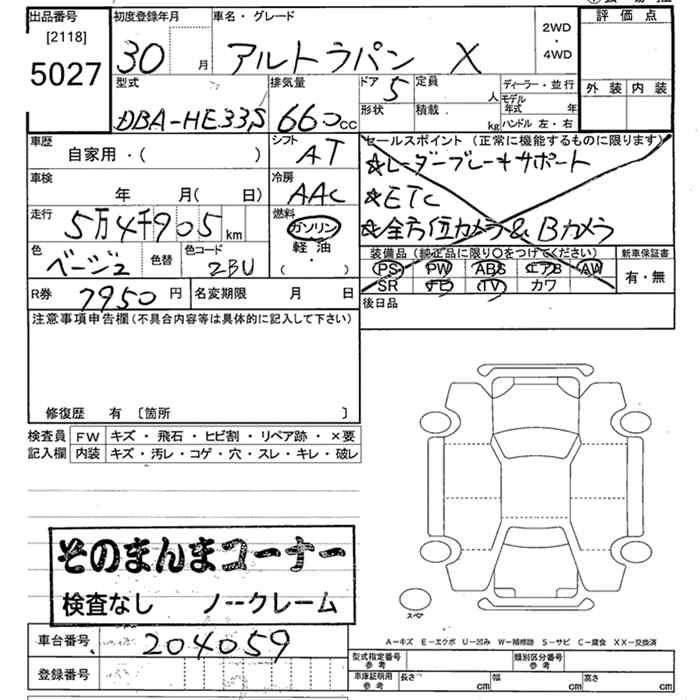 出品番号 初度登録年月 車名・グレード 評価点
[2118]
5027
30 月 アルトラパン X 2WD・4WD
外装 内装
型式 排気量 ドア 定員 ディーラー・並行
DBA-HE33S 660cc 5 人 モデル年式 年
形状 積載 kg ハンドル 左・右
車歴 シフト セールスポイント (正常に機能するものに限ります)
自家用・( ) AT ☆レーダーブレーキサポート
車検 冷房 ☆ETC
年 月( 日) AAC ☆全方位カメラ&Bカメラ
走行 燃料
5万4千905km ガソリン
軽・油
( ・ )
色 色替 色コード
ベージュ ZBU
装備品 (純正品に限り○をつけてください) 新車保証書
PS PW ABS エアB AW 有・無
SR TV カワ
R券 7950円 名変期限 月 日 後日品
注意事項申告欄(不具合内容等は具体的に記入して下さい)
修復歴 有 〔箇所 〕
検査員 FW キズ・飛石・ヒビ割・リペア跡・×要
記入欄 内装 キズ・汚レ・コゲ・穴・スレ・キレ・破レ
そのまんまコーナー
検査なし ノークレーム
スペア
A-キズ E-エクボ U-凹み W-補修跡 S-サビ C-腐食 XX-交換済
車台番号 204059
登録番号
型式指定番号 参考 類別区分番号 参考
車庫証明用 参考 長さ cm 幅 cm 高さ cm